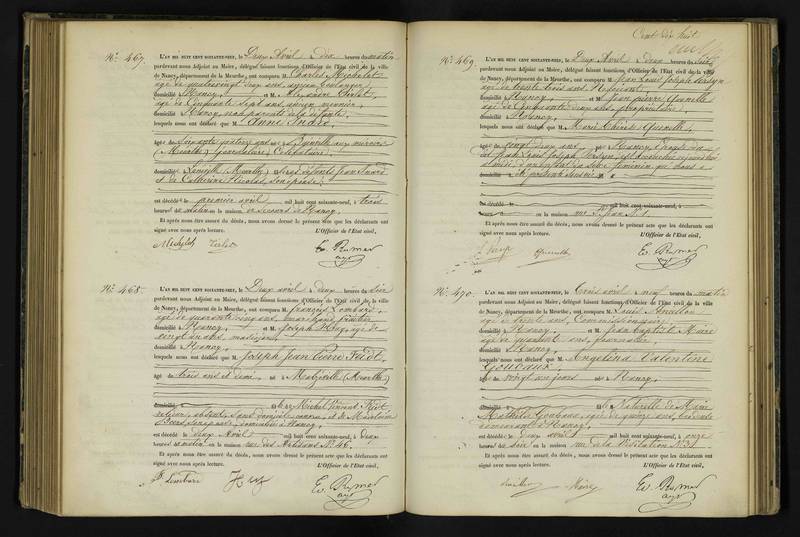 N.° 467.
L'AN MIL HUIT CENT SOIXANTE-NEUF, le Deux Avril à dix heures du matin
pardevant nous Adjoint au Maire, délégué faisant fonctions d'Officier de l'Etat civil de la ville
de Nancy, département de la Meurthe, ont comparu M. Charles Michelet
âgé de quatrevingt deux ans, ancien boulanger
domicilié à Nancy, et M. Alexandre
âgé de Cinquante sept ans ancien meunier,
domicilié à Nancy, non parents de la défunte,
lesquels nous ont déclaré que M. Anne André,
âgée de Soixante quatorze ans née à aux miroirs
(Meurthe) Célibataire,
domiciliée à Lunéville (Meurthe) des défunts Jean André
et de Catherine Nicolas, son épouse;
est décédée le premier avril mil huit cent soixante-neuf, à trois
heures du matin en la maison de secours de Nancy.
Et après nous être assuré du décès, nous avons dressé le présent acte que les déclarants ont
signé avec nous après lecture. L'Officier de l'Etat civil,
Michelet
N.° 468.
L'AN MIL HUIT CENT SOIXANTE-NEUF, le Deux avril à deux heures du soir
pardevant nous Adjoint au Maire, délégué faisant fonctions d'Officier de l'Etat civil de la ville
de Nancy, département de la Meurthe, ont comparu M. François Lombard,
âgé de quarante cinq ans, marchand fruitier
domicilié à Nancy, et M. Joseph âgé de
vingt un ans,
domicilié à Nancy
lesquels nous ont déclaré que M. Joseph Jean Pierre
âgé de trois ans et demi né à Malzéville (Meurthe)
domicilié fils de Michel Vincent
absent, sans domicile connu, et de
son épouse, domiciliée à Nancy,
est décédé le deux Avril mil huit cent soixante-neuf, à deux
heures du matin en la maison rue des Artisans N.° 46.
Et après nous être assuré du décès, nous avons dressé le présent acte que les déclarants ont
signé avec nous après lecture. L'Officier de l'Etat civil,
Cent dix huit
N.° 469.
L'AN MIL HUIT CENT SOIXANTE-NEUF, le Deux Avril à deux heures du soir
pardevant nous Adjoint au Maire, délégué faisant fonctions d'Officier de l'Etat civil de la ville
de Nancy, département de la Meurthe, ont comparu M. Jean Louis Joseph
âgé de trente trois ans Négociant
domicilié à Nancy et M. Jean pierre
âgé de Cinquante deux ans, propriétaire,
domicilié à Nancy,
lesquels nous ont déclaré que M. Marie Thérèse
âgée de vingt deux ans née à Nancy, Epouse du
dit Jean Louis Joseph est accouchée
midi, d'un enfant du sexe féminin qui nous a
été présenté sans vie
mil huit cent soixante-neuf, à
en la maison rue St Jean N.° 1
Et après nous être assuré du décès, nous avons dressé le présent acte que les déclarants ont
signé avec nous après lecture. L'Officier de l'Etat civil,
N.° 470.
L'AN MIL HUIT CENT SOIXANTE-NEUF, le Trois avril à neuf heures du matin
pardevant nous Adjoint au Maire, délégué faisant fonctions d'Officier de l'Etat civil de la ville
de Nancy, département de la Meurthe, ont comparu M. Louis
âgé de trente ans, Commissionnaire
domicilié à Nancy, et M. Jean Baptiste Maire
âgé de quarante ans, journalier,
domicilié à Nancy,
lesquels nous ont déclaré que M. Angelina Valentine
Goubaux,
âgée de vingt un jours née à Nancy,
domicilié fille Naturelle de Marie
Mathilde Goubaux, âgée de quinze ans, brodeuse
demeurant à Nancy,
est décédée le deux avril mil huit cent soixante-neuf, à onze
heures du soir en la maison rue de la Visitation N.° 31
Et après nous être assuré du décès, nous avons dressé le présent acte que les déclarants ont
signé avec nous après lecture. L'Officier de l'Etat civil,